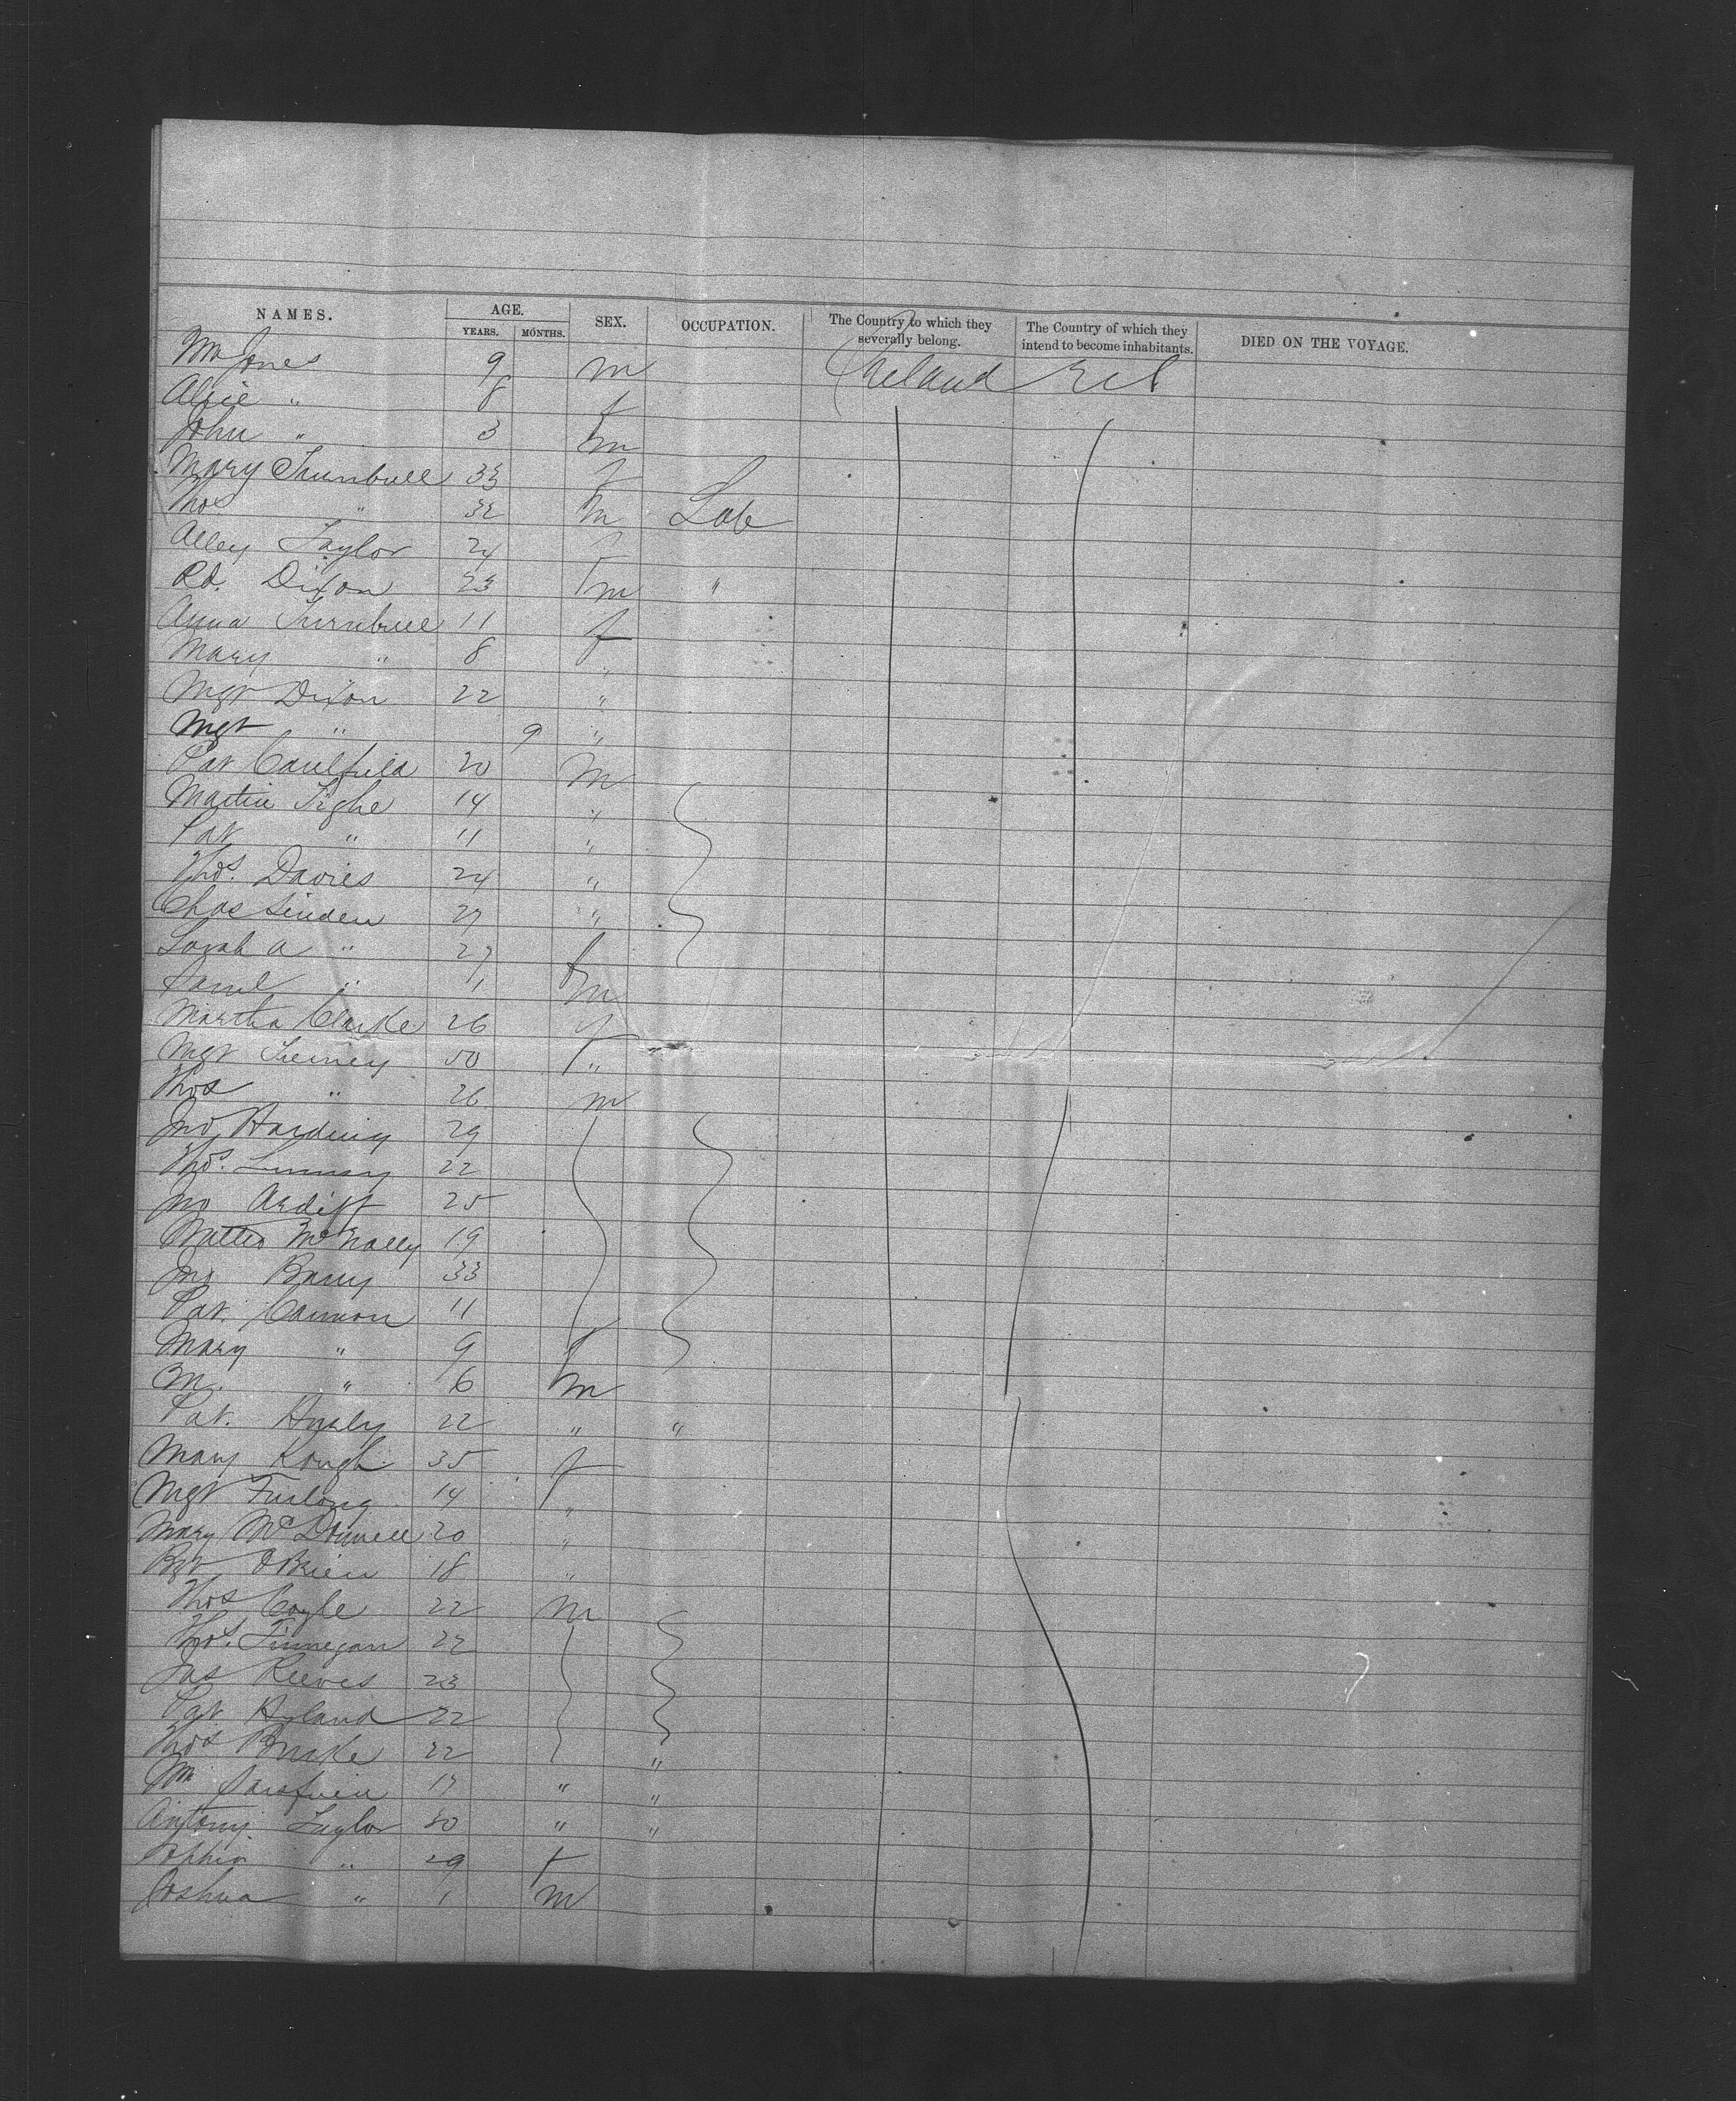 NAMES. AGE. SEX. OCCUPATION. The Country to which they severally belong. The Country of which they intend to become inhabitants. DIED ON THE VOYAGE.
YEARS. MONTHS.
Wm Jones 9 m Ireland
" 8 f
John " 3 m
Mary Turnbull 33 f
Thos " 32 m Lab
Alley Taylor 24 f
Rd. Dixon 23 m "
Anna Turnbull 11 f
Mary " 8 "
Mgt Dixon 22 "
Mgt " 9 "
Pat Caulfield 20 m
Martin Tighe 14 "
Pat " 11 "
Thos. Davies 24 "
Chas Linden 27 "
Sarah A " 27 f
Saml " 11 m
Martha Clarke 26 f
Mgt 50 "
Thos " 26 m
Jno Harding 29
Thos. 22
Jno Ardiff 25
McNally 19
Jno Barry 33
Pat. Cannon 11
Mary " 9 f
M. " 6 m
Pat. 22 " "
Mary Keough 35 f
Mgt Furlong 14 "
Mary McDonnell 20 "
Bgt OBrien 18 "
Thos Coyle 22 m
Thos. Finnegan 22
Jas Reeves 23
Pat Hyland 22
Thos Burke 22 "
Wm 17 " "
Antony Taylor 30 " "
Sophia " 29 f
Joshua " 1 m